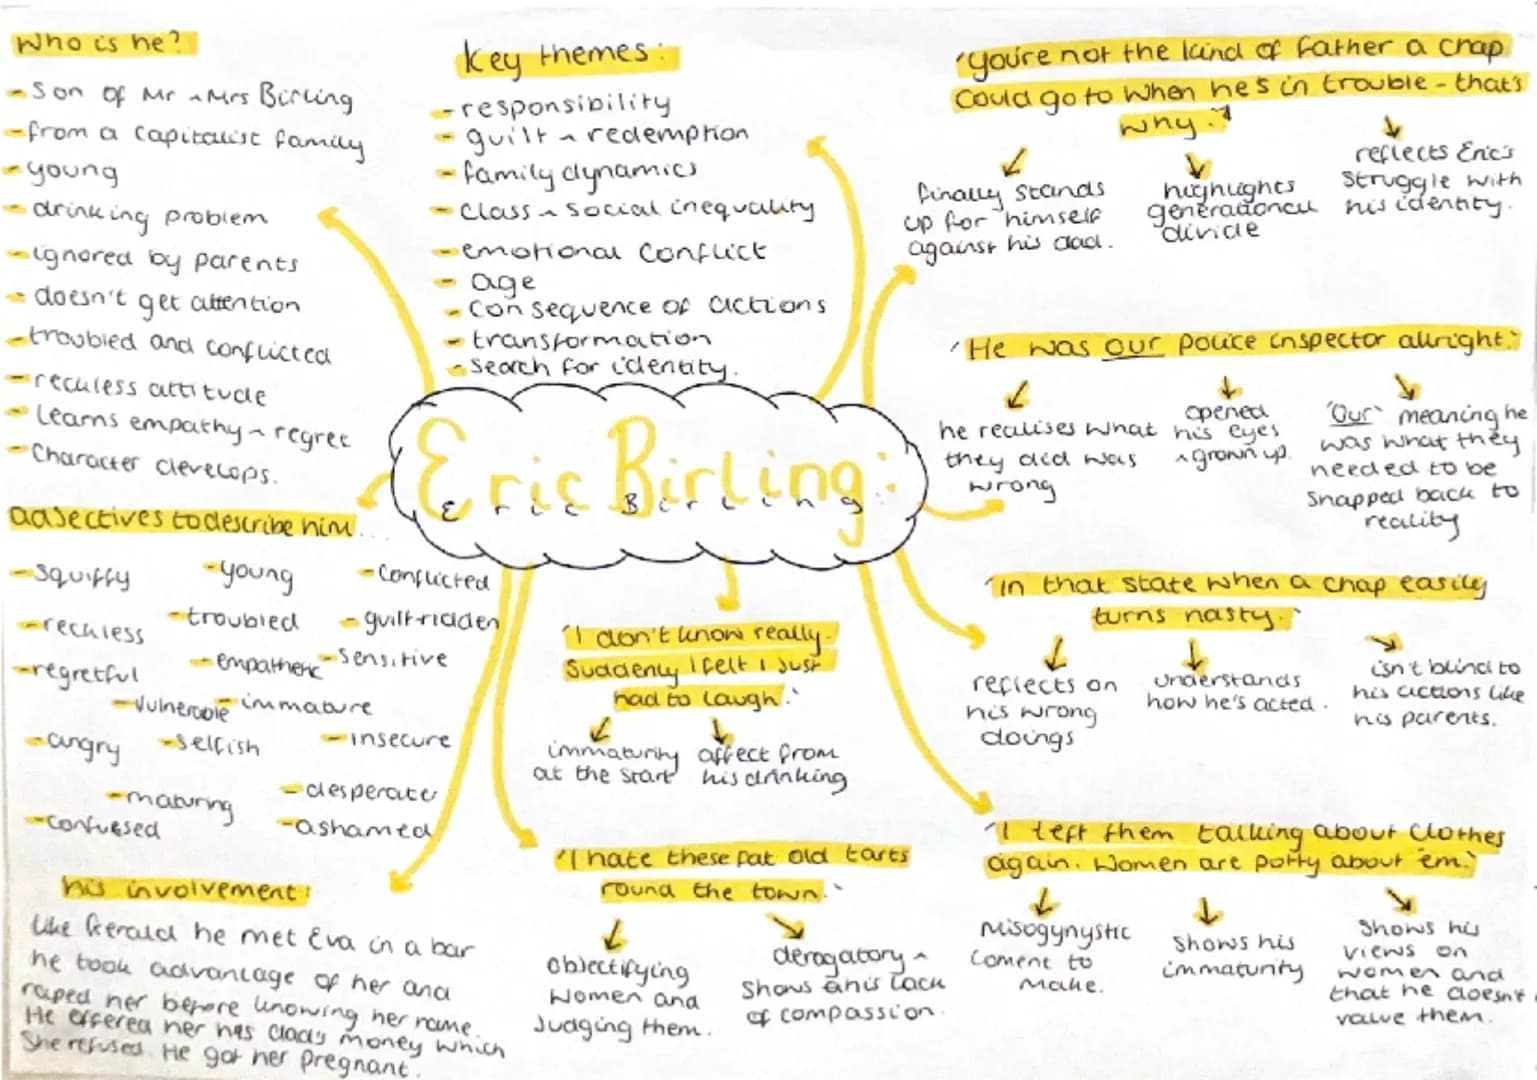 Who is he?
- Son of Mr ~ Mrs Birling
- from a capitalist family
- young
- drinking problem
- ignored by parents
- doesn't get attention
- troubled and conflicted
- reckless attitude
- Learns empathy ~ regret
- Character develops.
Key themes:
- responsibility
- guilt ~ redemption
- family dynamics
- class ~ social inequality
- emotional conflict
- age
- consequence of actions
- transformation
- search for identity.
'you're not the kind of father a chap
could go to when he's in trouble - that's
why.'
finally stands
up for himself
against his dad.
highlights
generational
divide
reflects Eric's
struggle with
his identity.
'He was our police inspector allright.'
he realises what
they did was
wrong
opened
his eyes
~ grown up.
'Our' meaning he
was what they
needed to be
snapped back to
reality
Eric Birling:
Eric Birling
adjectives to describe him...
- squiffy
- young
- conflicted
- reckless
- troubled
- guilt-ridden
- regretful
- empathetic
- sensitive
- vulnerable
- immature
- angry
- selfish
- insecure
- maturing
- desperate
- confused
- ashamed
'I don't know really.
Suddenly I felt I just
had to laugh.'
immaturity
at the start
affect from
his drinking
'in that state when a chap easily
turns nasty.'
reflects on
his wrong
doings
understands
how he's acted.
isn't blind to
his actions like
his parents.
his involvement:
Like Gerald he met Eva in a bar
he took advantage of her and
raped her before knowing her name.
He offered her his dads money which
She refused. He got her pregnant.
'I hate these fat old tarts
round the town.'
objectifying
women and
Judging them.
derogatory ~
shows his lack
of compassion.
'I left them talking about clothes
again. Women are potty about 'em.'
Misogynystic
coment to
make.
shows his
immaturity
shows his
views on
women and
that he doesn't
value them.